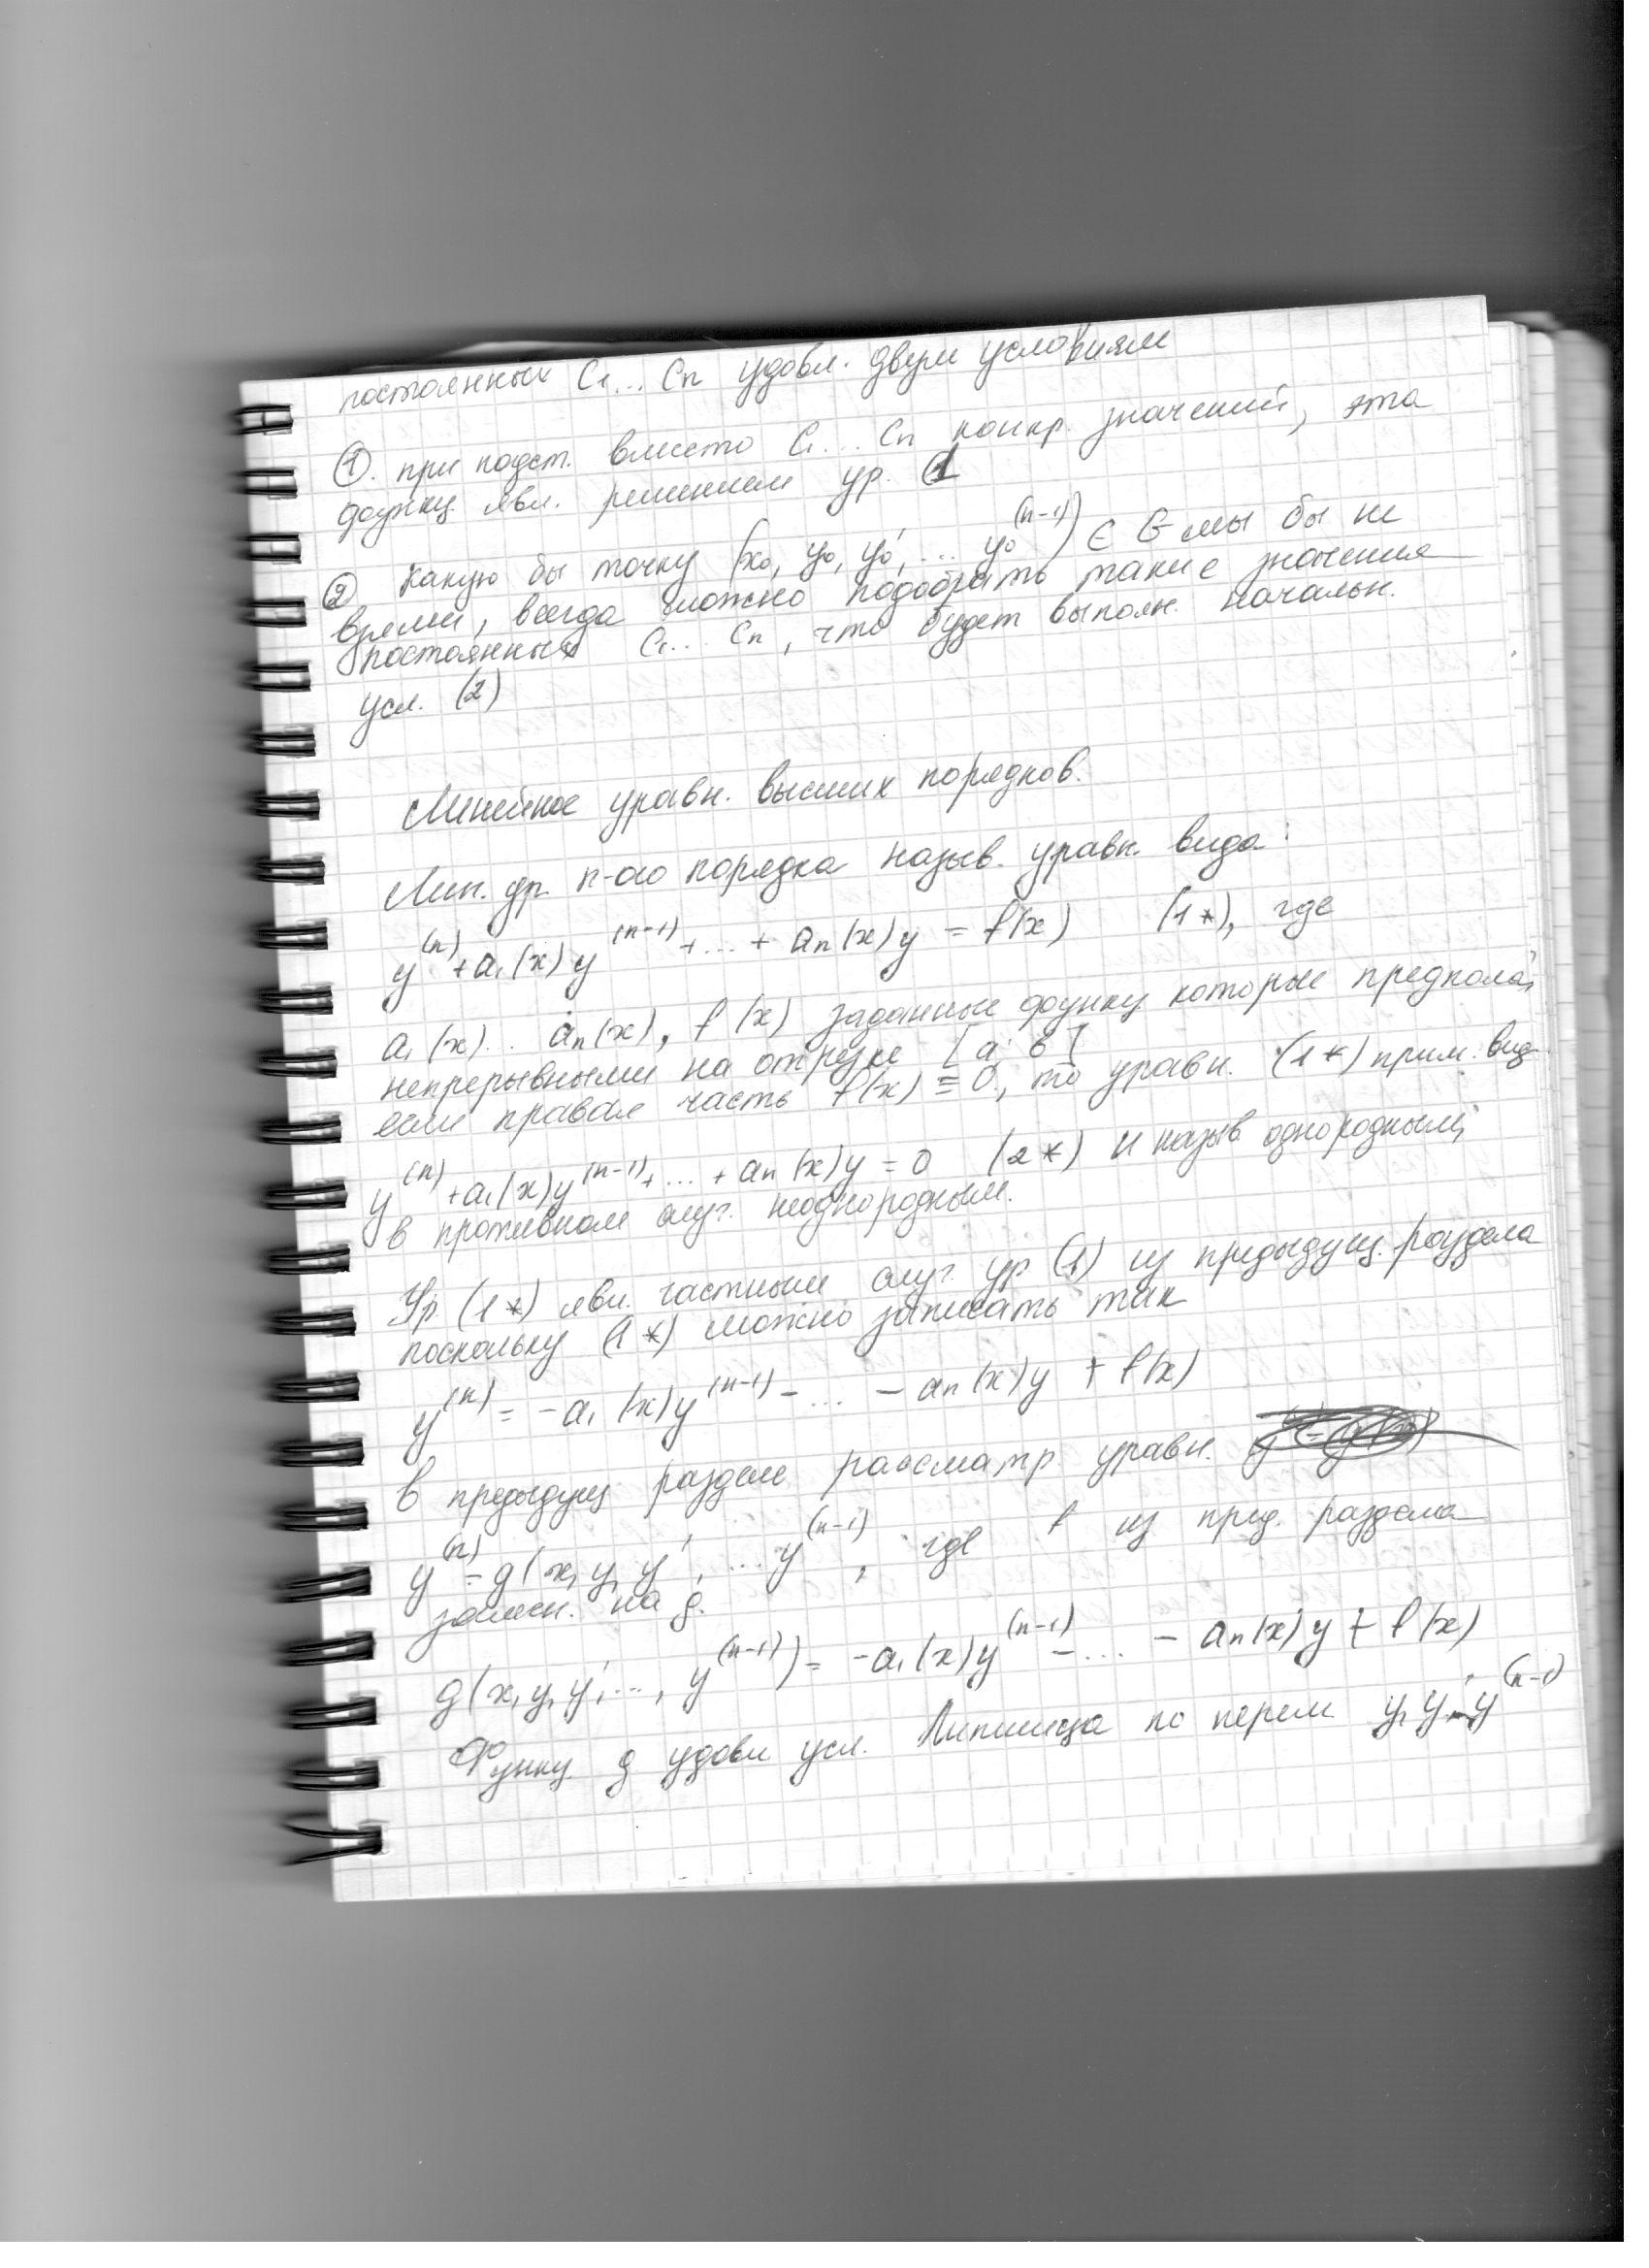 постоянных C₁... Cₙ удовл. двум условиям
①. при подст. вместо C₁... Cₙ конкр. значений, эта
функц. явл. решением ур. (1
② какую бы точку (x₀, y₀, y₀', ... y₀⁽ⁿ⁻¹⁾) ∈ G мы бы не
время, всегда можно подобрать такие значения
постоянных C₁... Cₙ, что будет выполн. начальн.
усл. (2)
Линейное уравн. высших порядков.
Лин. ур. n-ого порядка назыв. уравн. вида:
y⁽ⁿ⁾+a₁(x)y⁽ⁿ⁻¹⁾+...+aₙ(x)y = f(x) (1*), где
a₁(x)... aₙ(x), f(x) заданные функц которые предпола,
непрерывными на отрезке [a; b]
если правая часть f(x) ≡ 0, то уравн. (1*) прим. вид
y⁽ⁿ⁾+a₁(x)y⁽ⁿ⁻¹⁾+...+aₙ(x)y = 0 (2*) и назыв однородным,
в противном случ. неоднородным.
Ур. (1*) явл. частным случ. ур (1) из предыдущ. раздела
поскольку (1*) можно записать так
y⁽ⁿ⁾ = -a₁(x)y⁽ⁿ⁻¹⁾ - ... - aₙ(x)y + f(x)
в предыдущ разделе рассматр уравн.
y⁽ⁿ⁾ = g(x, y, y', ... y⁽ⁿ⁻¹⁾, где f из пред. раздела
замен. на g.
g(x, y, y', ..., y⁽ⁿ⁻¹⁾) = -a₁(x)y⁽ⁿ⁻¹⁾ - ... - aₙ(x)y + f(x)
Функц. g удовл усл. Липшица по перем y, y',...y⁽ⁿ⁻¹⁾